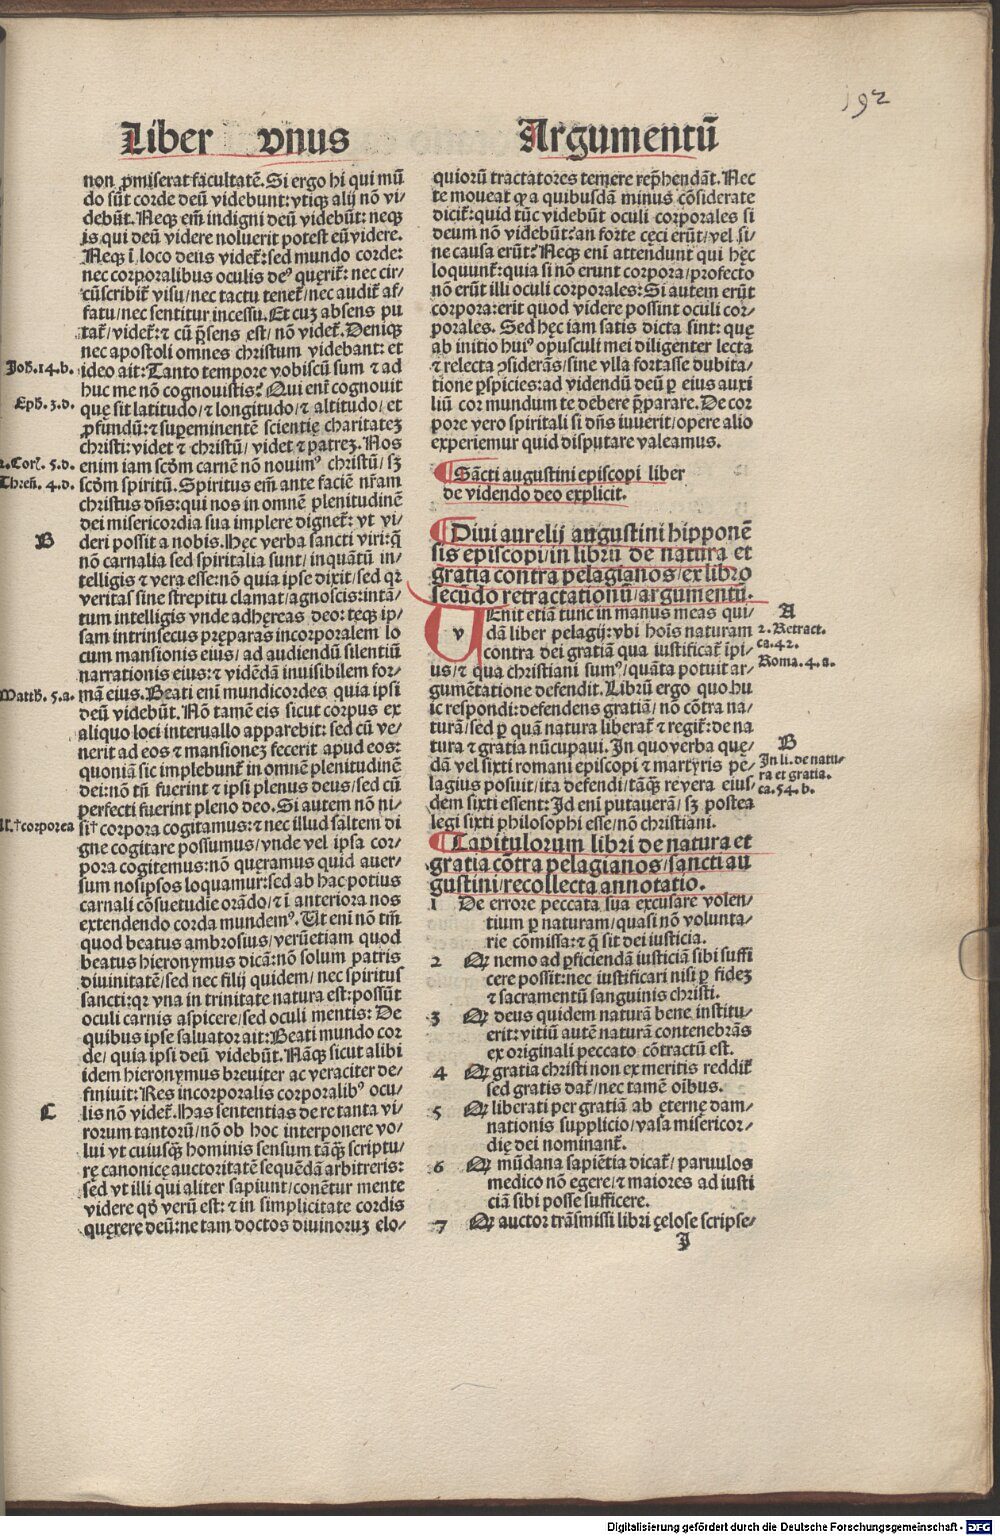 192
Liber vnus
non ꝓmiserat facultatē. Si ergo hi qui mū
do sūt corde deū videbunt: vtiqꝫ alij nō vi⸗
debūt. Neqꝫ em̄ indigni deū videbūt: neqꝫ
is qui deū videre noluerit potest eū videre.
Neqꝫ ī loco deus videt᷑: sed mundo corde:
nec corporalibus oculis deꝰ quęrit᷑: nec cir⸗
cūscribit᷑ visu/ nec tactu tenet᷑/ nec audit᷑ af⸗
fatu/ nec sentitur incessu. Et cuꝫ absens pu
tat᷑/ videt᷑: ⁊ cū p̄sens est/ nō videt᷑. Deniqꝫ
nec apostoli omnes christum videbant: et
Joh̄. 14. b. ideo ait: Tanto tempore vobiscū sum ⁊ ad
huc me nō cognouistis? Qui eni cognouit
Eph̄. 3. d. quę sit latitudo/ ⁊ longitudo/ ⁊ altitudo/ et
ꝓfundū: ⁊ suꝑeminentē scientię charitateꝫ
christi: videt ⁊ christū/ videt ⁊ patreꝫ. Nos
2. Cor. 5. d. enim iam scd̄m carnē nō nouimꝰ christū/ sꝫ
Thren̄. 4. d. scd̄m spiritū. Spiritus em̄ ante faciē nr̄am
christus dn̄s: qui nos in omnē plenitudinē
dei misericordia sua implere dignet᷑: vt vi⸗
B deri possit a nobis. Hęc verba sancti viri: q̄
nō carnalia sed spiritalia sunt/ inquātū in⸗
telligis ⁊ vera esse: nō quia ipse dixit/ sed qꝛ
veritas sine strepitu clamat/ agnoscis: intā⸗
tum intelligis vnde adhęreas deo: teqꝫ ip⸗
sam intrinsecus pręparas incorporalem lo
cum mansionis eius/ ad audiendū silentiū
narrationis eius: ⁊ vidēdā inuisibilem for⸗
Matth̄. 5. a. mā eius. Beati eni mundicordes quia ipsi
deū videbūt. Nō tamē eis sicut corpus ex
aliquo loci interuallo apparebit: sed cū ve⸗
nerit ad eos ⁊ mansioneꝫ fecerit apud eos:
quoniā sic implebunt᷑ in omnē plenitudinē
dei: nō tn̄ fuerint ⁊ ipsi plenus deus/ sed cū
perfecti fuerint pleno deo. Si autem nō ni⸗
al. †corporea si† corpora cogitamus: ⁊ nec illud saltem di
gne cogitare possumus/ vnde vel ipsa cor⸗
pora cogitemus: nō quęramus quid auer⸗
sum nosipsos loquamur: sed ab hac potius
carnali cōsuetudie orādo/ ⁊ ī anteriora nos
extendendo corda mundemꝰ. Ut eni nō tm̄
quod beatus ambrosius/ verūetiam quod
beatus hieronymus dicā: nō solum patris
diuinitatē/ sed nec filij quidem/ nec spiritus
sancti: qꝛ vna in trinitate natura est: possūt
oculi carnis aspicere/ sed oculi mentis: De
quibus ipse saluator ait: Beati mundo cor
de/ quia ipsi deū videbūt. Nāqꝫ sicut alibi
idem hieronymus breuiter ac veraciter de⸗
finiuit: Res incorporalis corporalibꝰ ocu⸗
C lis nō videt᷑. Has sententias de re tanta vi⸗
rorum tantorū/ nō ob hoc interponere vo⸗
lui vt cuiusqꝫ hominis sensum tāqꝫ scriptu⸗
rę canonicę auctoritatē sequēdā arbitreris:
sed vt illi qui aliter sapiunt/ conētur mente
videre qd̄ verū est: ⁊ in simplicitate cordis
quęrere deū: ne tam doctos diuinoruꝫ elo⸗
Argumentū
quiorū tractatores temere rep̄hendāt. Nec
te moueat ꝙ a quibusdā minus cōsiderate
dicit᷑: quid tūc videbūt oculi corporales si
deum nō videbūt? an forte cęci erūt/ vel si⸗
ne causa erūt? Neqꝫ eni attendunt qui hęc
loquunt᷑: quia si nō erunt corpora/ profecto
nō erūt illi oculi corporales: Si autem erūt
corpora: erit quod videre possint oculi cor⸗
porales. Sed hęc iam satis dicta sint: quę
ab initio huiꝰ opusculi mei diligenter lecta
⁊ relecta ꝯsiderās/ sine vlla fortasse dubita⸗
tione ꝑspicies: ad videndū deū ꝑ eius auxi
liū cor mundum te debere p̄parare. De cor
pore vero spiritali si dn̄s iuuerit/ opere alio
experiemur quid disputare valeamus.
¶ Sācti augustini episcopi liber
de videndo deo explicit.
¶ Diui aurelij augustini hipponē
sis episcopi/ in librū de natura et
gratia contra pelagianos/ ex libro
secūdo retractationū/ argumentū.
VEnit etiā tunc in manus meas qui⸗ A
dā liber pelagij: vbi hoīs naturam 2. Retract.
contra dei gratiā qua iustificat᷑ īpi⸗ ca. 42.
us/ ⁊ qua christiani sumꝰ/ quāta potuit ar⸗ Roma. 4. a.
gumētatione defendit. Librū ergo quo hu
ic respondi: defendens gratiā/ nō cōtra na⸗
turā/ sed ꝑ quā natura liberat᷑ ⁊ regit᷑: de na
tura ⁊ gratia nūcupaui. In quo verba quę⸗ B
dā vel sixti romani episcopi ⁊ martyris pe⸗ In li. de natu⸗
lagius posuit/ ita defendi/ tāqꝫ reuera eius⸗ ra et gratia.
dem sixti essent: Id eni putauerā/ sꝫ postea ca. 54. b.
legi sixti philosophi esse/ nō christiani.
¶ Capitulorum libri de natura et
gratia cōtra pelagianos/ sancti au
gustini/ recollecta annotatio.
1 De errore peccata sua excusare volen⸗
tium ꝑ naturam/ quasi nō volunta⸗
rie cōmissa: ⁊ q̄ sit dei iusticia.
2 Qꝛ nemo ad ꝑficiendā iusticiā sibi suffi
cere possit: nec iustificari nisi ꝑ fideꝫ
⁊ sacramentū sanguinis christi.
3 Qꝛ deus quidem naturā bene institu⸗
erit: vitiū autē naturā contenebrās
ex originali peccato cōtractū est.
4 Qꝛ gratia christi non ex meritis reddit᷑
sed gratis dat᷑/ nec tamē oībus.
5 Qꝛ liberati per gratiā ab eternę dam⸗
nationis supplicio/ vasa misericor⸗
dię dei nominant᷑.
6 Qꝛ mūdana sapiētia dicat᷑/ paruulos
medico nō egere/ ⁊ maiores ad iusti
ciā sibi posse sufficere.
7 Qꝛ auctor trāsmissi libri çelose scripse⸗
J
Digitalisierung gefördert durch die Deutsche Forschungsgemeinschaft - DFG